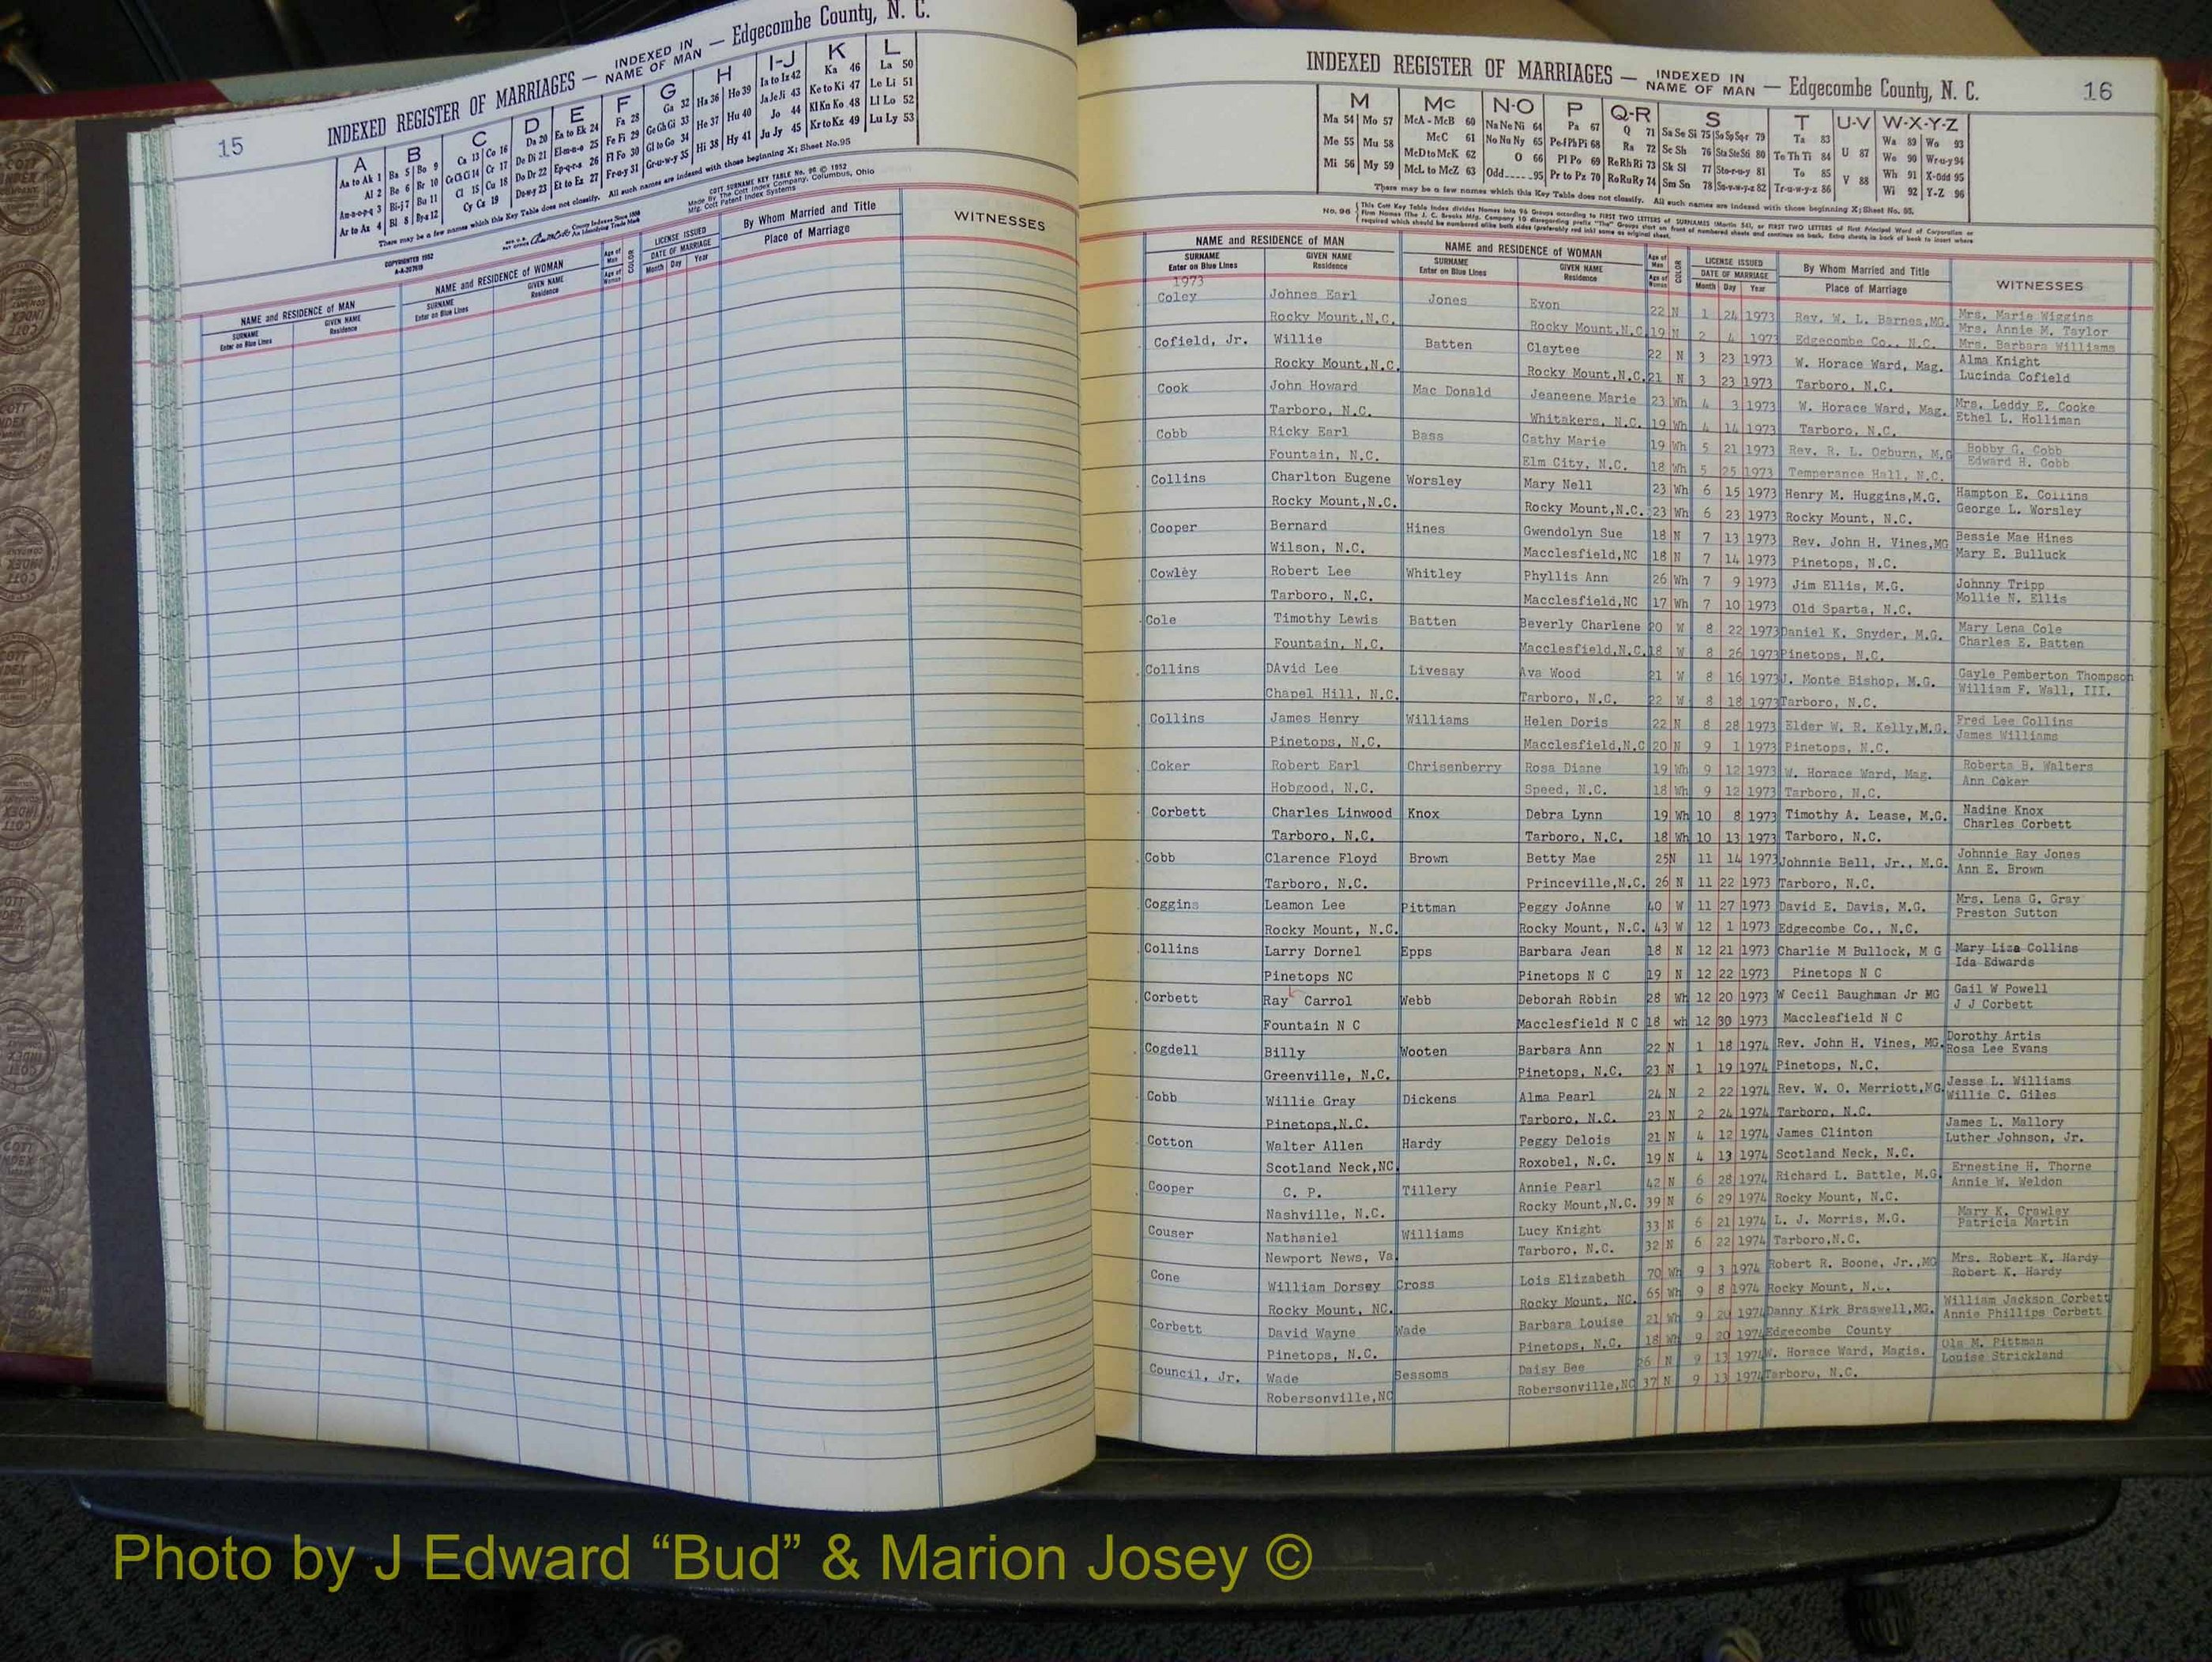 15
INDEXED REGISTER OF MARRIAGES — INDEXED IN NAME OF MAN — Edgecombe County, N. C.
A B C D E F G H I-J K L
Aa to Ak 1 Ba 5 Bo 9 Ca 13 Co 16 Da 20 Ea to Ek 24 Fa 28 Ga 32 Ha 36 Ho 39 Ia to Iz 42 Ka 46 La 50
Al 2 Be 6 Br 10 Ce Ch Ci 14 Cr 17 De Di 21 El-m-n-o 25 Fe Fi 29 Ge Gh Gi 33 He 37 Hu 40 Ja Je Ji 43 Ke to Ki 47 Le Li 51
An-s-o-p-q 3 Bi-j 7 Bu 11 Cl 15 Cu 18 Do Dr 22 Ep-q-r-s 26 Fl Fo 30 Gl to Go 34 Hi 38 Hy 41 Jo 44 Kl Kn Ko 48 Ll Lo 52
Ar to Az 4 Bl 8 By-z 12 Cy Cz 19 Du-w-y 23 Et to Ez 27 Fr-u-y 31 Gr-u-w-y 35 Ju Jy 45 Kr to Kz 49 Lu Ly 53
There may be a few names which this Key Table does not classify. All such names are indexed with those beginning X; Sheet No. 95
COPYRIGHTED 1952
A-A-207619
COTT SURNAME KEY TABLE No. 96 © 1952
Made By The Cott Index Company, Columbus, Ohio
Mfg. Cott Patent Index Systems
NAME and RESIDENCE OF MAN NAME and RESIDENCE OF WOMAN Age of Man COLOR LICENSE ISSUED By Whom Married and Title WITNESSES
SURNAME GIVEN NAME SURNAME GIVEN NAME Age of Woman DATE OF MARRIAGE Place of Marriage
Enter on Blue Lines Residence Enter on Blue Lines Residence Month Day Year
INDEXED REGISTER OF MARRIAGES — INDEXED IN NAME OF MAN — Edgecombe County, N. C.
16
M Mc N-O P Q-R S T U-V W-X-Y-Z
Ma 54 Mo 57 McA - McB 60 Na Ne Ni 64 Pa 67 Q 71 Sa Se Si 75 Sa Sp Sq-r 79 Ta 83 Wa 89 Wo 93
Me 55 Mu 58 McC 61 No Nu Ny 65 Pe-f Ph Pi 68 Ra 72 Sc Sh 76 Sta Ste Sti 80 Te Th Ti 84 U 87 We 90 Wr-u-y 94
Mi 56 My 59 McD to McK 62 O 66 Pl Po 69 Re Rh Ri 73 Sk Sl 77 Sto-r-u-y 81 To 85 V 88 Wh 91 X-Odd 95
McL to McZ 63 Odd.....95 Pr to Pz 70 Ro Ru Ry 74 Sm Sn 78 Su-v-w-y-z 82 Tr-u-w-y-z 86 Wi 92 Y-Z 96
There may be a few names which this Key Table does not classify. All such names are indexed with those beginning X; Sheet No. 95.
NAME and RESIDENCE OF MAN NAME and RESIDENCE OF WOMAN Age of Man COLOR LICENSE ISSUED By Whom Married and Title WITNESSES
SURNAME GIVEN NAME SURNAME GIVEN NAME Age of Woman DATE OF MARRIAGE Place of Marriage
Enter on Blue Lines Residence Enter on Blue Lines Residence Month Day Year
1973
Coley Johnes Earl Jones Evon 22 N 1 24 1973 Rev. W. L. Barnes,MG. Mrs. Marie Wiggins
Mrs. Annie M. Taylor
Rocky Mount,N.C. Rocky Mount,N.C. 19 N 2 4 1973 Edgecombe Co., N.C. Mrs. Barbara Williams
Cofield, Jr. Willie Batten Claytee 22 N 3 23 1973 W. Horace Ward, Mag. Alma Knight
Rocky Mount,N.C. Rocky Mount,N.C. 21 N 3 23 1973 Tarboro, N.C. Lucinda Cofield
Cook John Howard Mac Donald Jeaneene Marie 23 Wh 4 3 1973 W. Horace Ward, Mag. Mrs. Leddy E. Cooke
Tarboro, N.C. Whitakers, N.C. 19 Wh 4 14 1973 Tarboro, N.C. Ethel L. Holliman
Cobb Ricky Earl Bass Cathy Marie 19 Wh 5 21 1973 Rev. R. L. Ogburn, M.G Bobby G. Cobb
Fountain, N.C. Elm City, N.C. 18 Wh 5 25 1973 Temperance Hall, N.C. Edward H. Cobb
Collins Charlton Eugene Worsley Mary Nell 23 Wh 6 15 1973 Henry M. Huggins,M.G. Hampton E. Collins
Rocky Mount,N.C. Rocky Mount,N.C. 23 Wh 6 23 1973 Rocky Mount, N.C. George L. Worsley
Cooper Bernard Hines Gwendolyn Sue 18 N 7 13 1973 Rev. John H. Vines,MG Bessie Mae Hines
Wilson, N.C. Macclesfield,NC 18 N 7 14 1973 Pinetops, N.C. Mary E. Bulluck
Cowley Robert Lee Whitley Phyllis Ann 26 Wh 7 9 1973 Jim Ellis, M.G. Johnny Tripp
Tarboro, N.C. Macclesfield,NC 17 Wh 7 10 1973 Old Sparta, N.C. Mollie N. Ellis
Cole Timothy Lewis Batten Beverly Charlene 20 W 8 22 1973 Daniel K. Snyder, M.G. Mary Lena Cole
Fountain, N.C. Macclesfield,N.C. 18 W 8 26 1973 Pinetops, N.C. Charles E. Batten
Collins DAvid Lee Livesay Ava Wood 21 W 8 16 1973 J. Monte Bishop, M.G. Gayle Pemberton Thompson
Chapel Hill, N.C. Tarboro, N.C. 22 W 8 18 1973 Tarboro, N.C. William F. Wall, III.
Collins James Henry Williams Helen Doris 22 N 8 28 1973 Elder W. R. Kelly,M.G. Fred Lee Collins
Pinetops, N.C. Macclesfield,N.C 20 N 9 1 1973 Pinetops, N.C. James Williams
Coker Robert Earl Chrisenberry Rosa Diane 19 Wh 9 12 1973 W. Horace Ward, Mag. Roberta B. Walters
Hobgood, N.C. Speed, N.C. 18 Wh 9 12 1973 Tarboro, N.C. Ann Coker
Corbett Charles Linwood Knox Debra Lynn 19 Wh 10 8 1973 Timothy A. Lease, M.G. Nadine Knox
Tarboro, N.C. Tarboro, N.C. 18 Wh 10 13 1973 Tarboro, N.C. Charles Corbett
Cobb Clarence Floyd Brown Betty Mae 25 N 11 14 1973 Johnnie Bell, Jr., M.G. Johnnie Ray Jones
Tarboro, N.C. Princeville,N.C. 26 N 11 22 1973 Tarboro, N.C. Ann E. Brown
Coggins Leamon Lee Pittman Peggy JoAnne 40 W 11 27 1973 David E. Davis, M.G. Mrs. Lena G. Gray
Rocky Mount, N.C. Rocky Mount, N.C. 43 W 12 1 1973 Edgecombe Co., N.C. Preston Sutton
Collins Larry Dornel Epps Barbara Jean 18 N 12 21 1973 Charlie M Bullock, M G Mary Liza Collins
Pinetops NC Pinetops N C 19 N 12 22 1973 Pinetops N C Ida Edwards
Corbett Ray Carrol Webb Deborah Robin 28 Wh 12 20 1973 W Cecil Baughman Jr MG Gail W Powell
Fountain N C Macclesfield N C 18 wh 12 30 1973 Macclesfield N C J J Corbett
Cogdell Billy Wooten Barbara Ann 22 N 1 18 1974 Rev. John H. Vines, MG. Dorothy Artis
Greenville, N.C. Pinetops, N.C. 23 N 1 19 1974 Pinetops, N.C. Rosa Lee Evans
Cobb Willie Gray Dickens Alma Pearl 24 N 2 22 1974 Rev. W. O. Merriott,MG Jesse L. Williams
Pinetops,N.C. Tarboro, N.C. 23 N 2 24 1974 Tarboro, N.C. Willie C. Giles
Cotton Walter Allen Hardy Peggy Delois 21 N 4 12 1974 James Clinton James L. Mallory
Scotland Neck,NC Roxobel, N.C. 19 N 4 13 1974 Scotland Neck, N.C. Luther Johnson, Jr.
Cooper C. P. Tillery Annie Pearl 42 N 6 28 1974 Richard L. Battle, M.G Ernestine H. Thorne
Nashville, N.C. Rocky Mount,N.C. 39 N 6 29 1974 Rocky Mount, N.C. Annie W. Weldon
Couser Nathaniel Williams Lucy Knight 33 N 6 21 1974 L. J. Morris, M.G. Mary K. Crawley
Newport News, Va Tarboro, N.C. 32 N 6 22 1974 Tarboro,N.C. Patricia Martin
Cone William Dorsey Cross Lois Elizabeth 70 Wh 9 3 1974 Robert R. Boone, Jr.,MG Mrs. Robert K. Hardy
Rocky Mount, NC. Rocky Mount, NC. 65 Wh 9 8 1974 Rocky Mount, N.C. Robert K. Hardy
Corbett David Wayne Wade Barbara Louise 21 Wh 9 20 1974 Danny Kirk Braswell,MG. William Jackson Corbett
Pinetops, N.C. Pinetops, N.C. 18 Wh 9 20 1974 Edgecombe County Annie Phillips Corbett
Council, Jr. Wade Sessoms Daisy Bee 26 N 9 13 1974 W. Horace Ward, Magis. Ola M. Pittman
Robersonville,NC Robersonville,NC 37 N 9 13 1974 Tarboro, N.C. Louise Strickland
Photo by J Edward “Bud” & Marion Josey ©